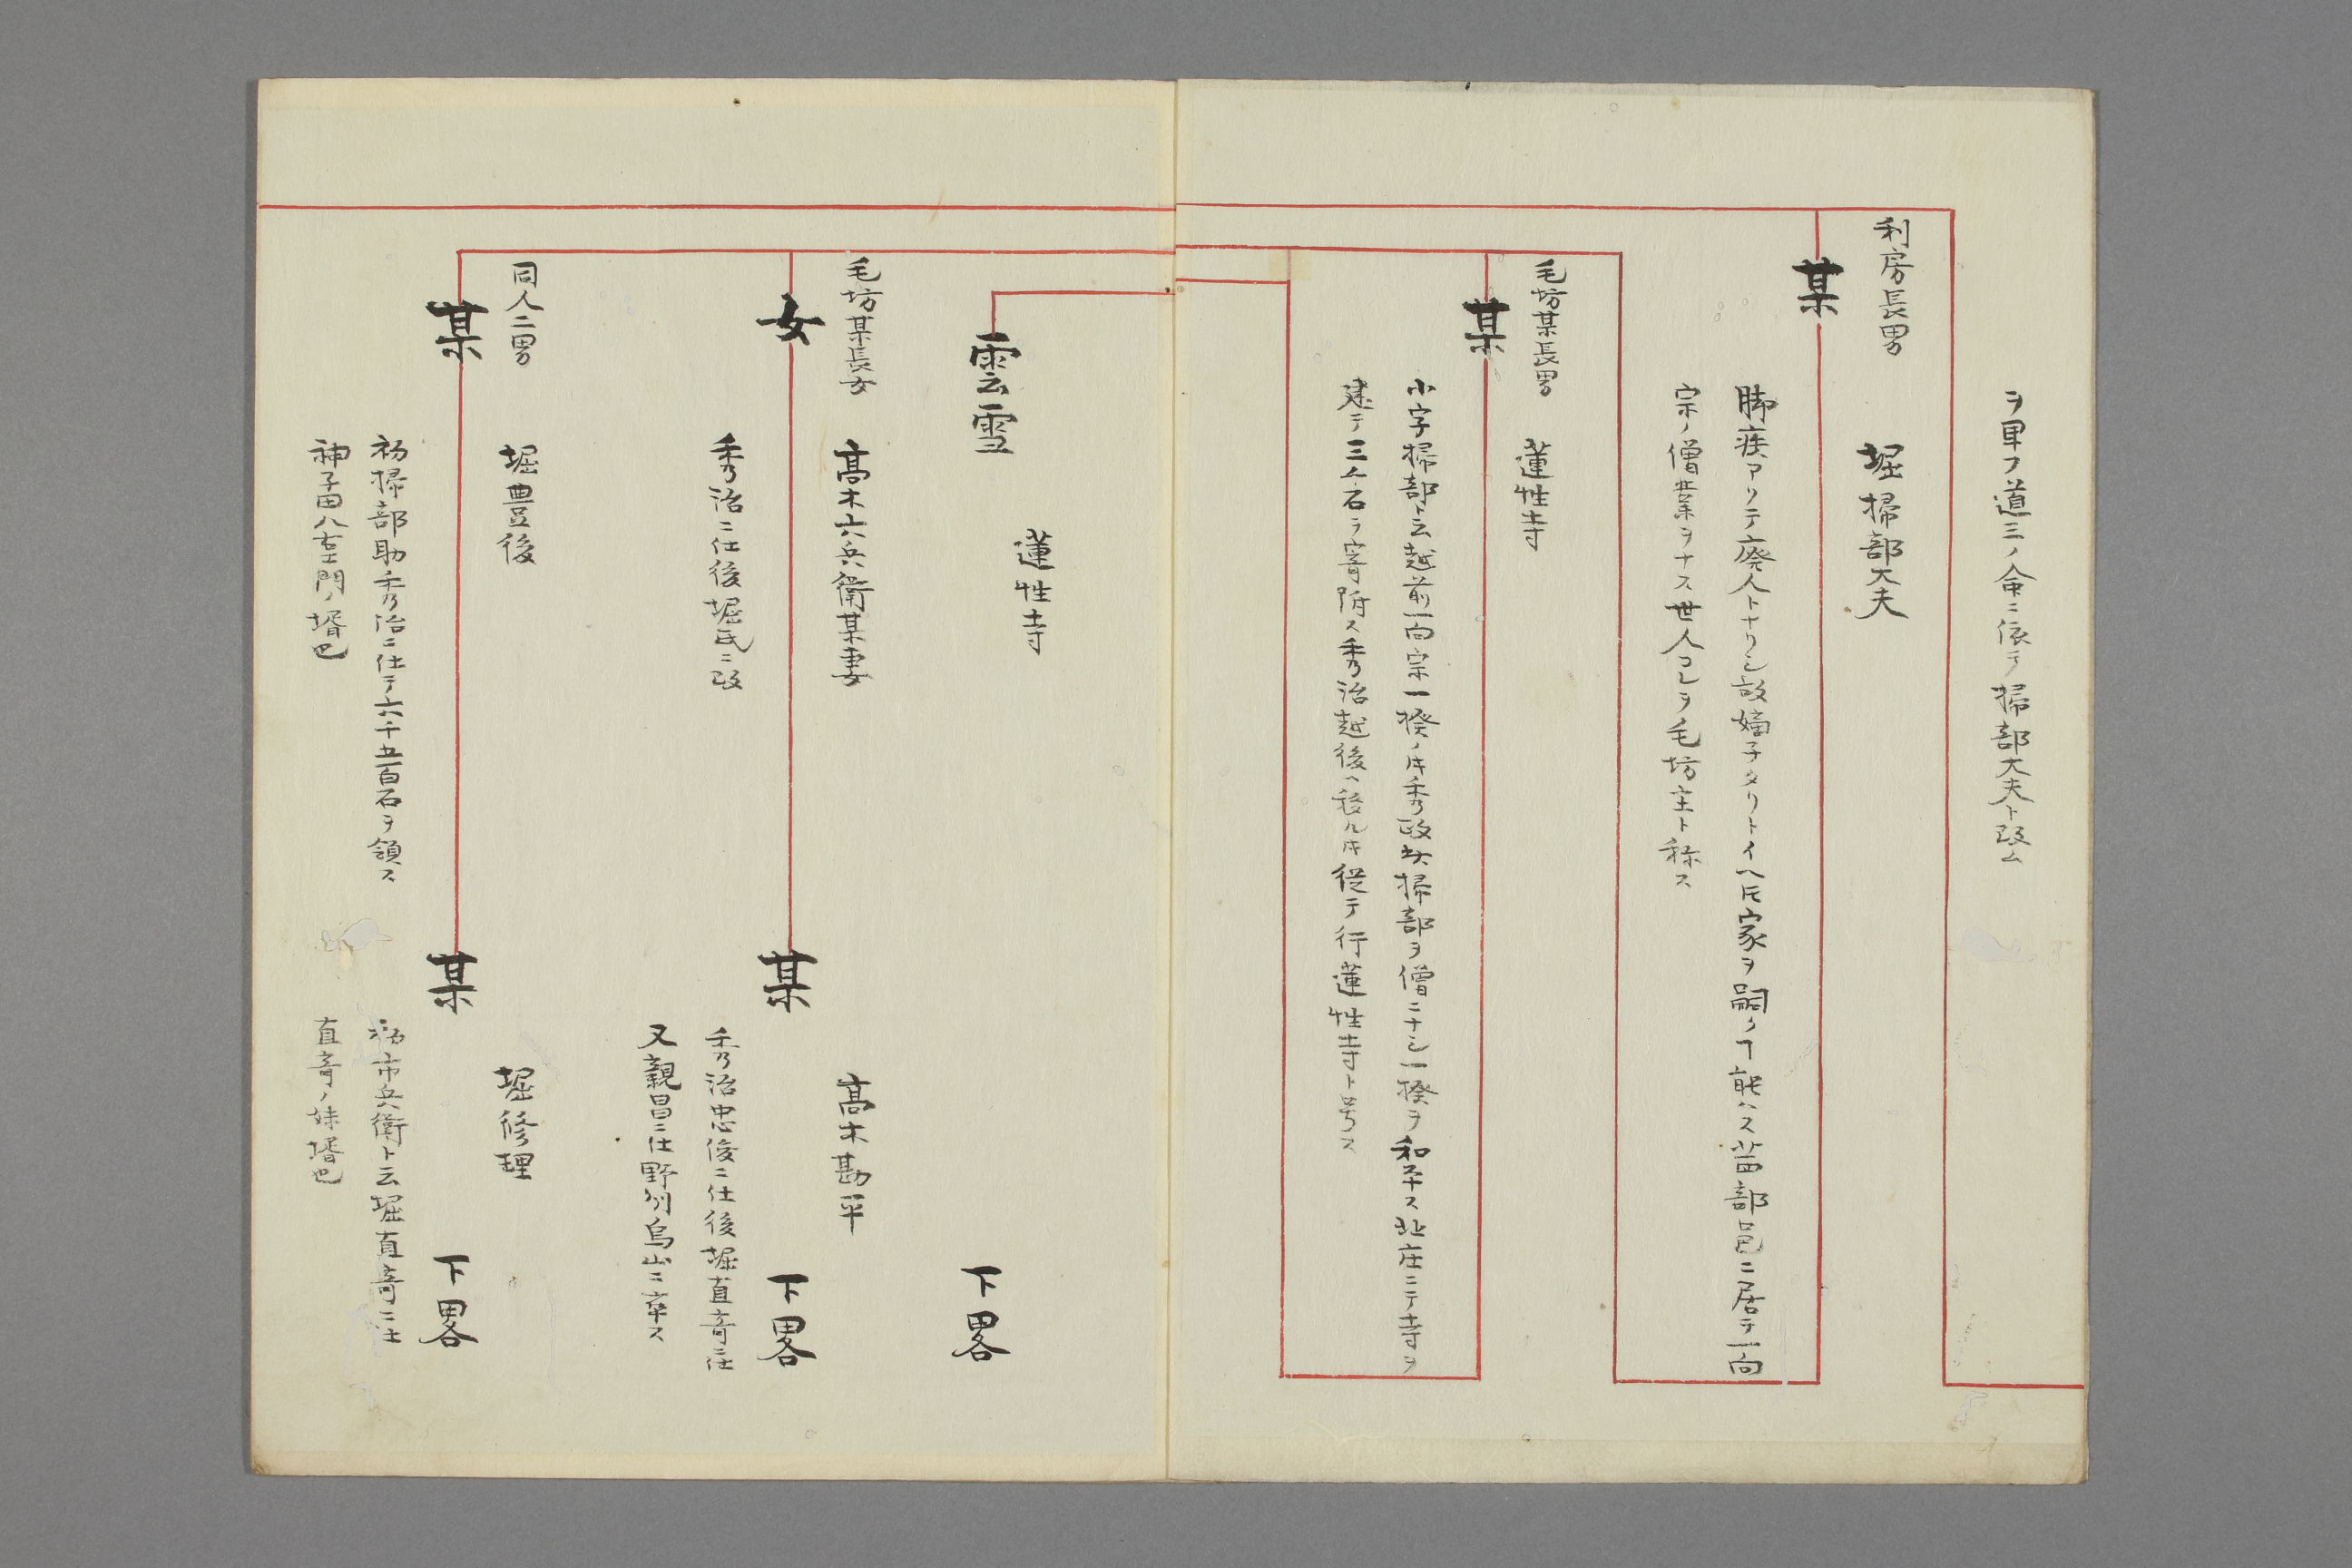 ヲ単フ道三ノ命ニ依テ掃部大夫ト改ム
利房長男
某
堀掃部大夫
脚疾アリテ廃人トナリシ故嫡子タリトイヘ𪜈家ヲ嗣クヿ能ハス茜部邑ニ居テ一向
宗ノ僧業ヲナス世人コレヲ毛坊主ト称ス
毛坊某長男
某
蓮性寺
小字掃部ト云越前一向宗一揆ノ𪜈秀政掃部ヲ僧ニナシ一揆ヲ和平ス北庄ニテ寺ヲ
建テ三人石ヲ寄附ス秀治越後ヘ移ル𪜈従テ行蓮性寺ト号ス
雲雪
蓮性寺
下畧
毛坊某長女
女
高木六兵衛某妻
秀治ニ仕後堀氏ニ改
某
高木勘平
秀治忠俊ニ仕後堀直竒ニ仕
又親昌ニ仕野州烏山ニ卒ス
下畧
同人二男
某
堀豊後
初掃部助秀治ニ仕テ六千五百石ヲ領ス
神子田八右エ門ノ壻也
某
堀修理
初市兵衛ト云堀直竒ニ仕
直竒ノ妹壻也
下畧